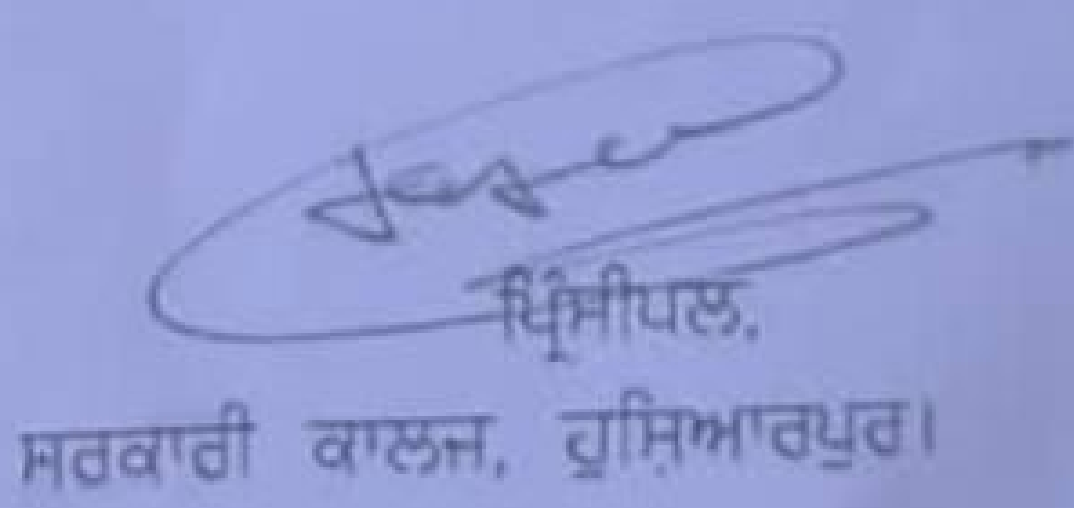 ਪ੍ਰਿੰਸੀਪਲ,
ਸਰਕਾਰੀ ਕਾਲਜ, ਹੁਸ਼ਿਆਰਪੁਰ।